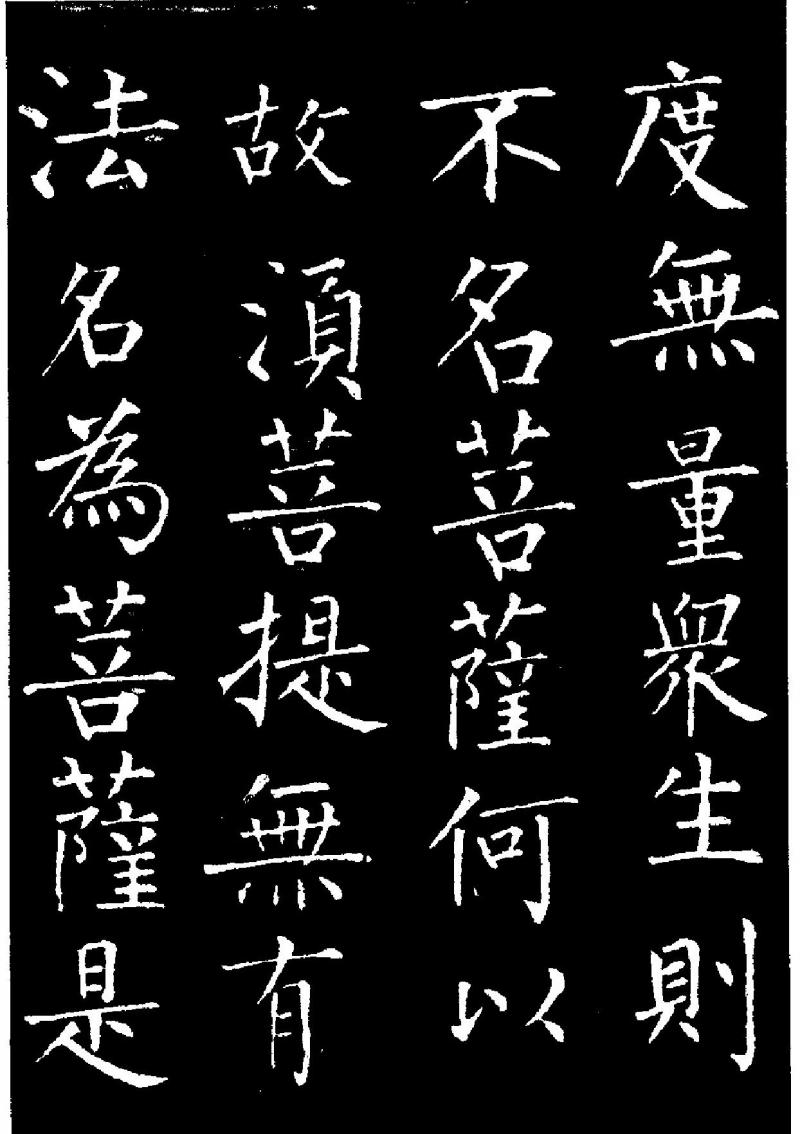 度無量衆生則
不名菩薩何以
故湏菩提無有
法名為菩薩是